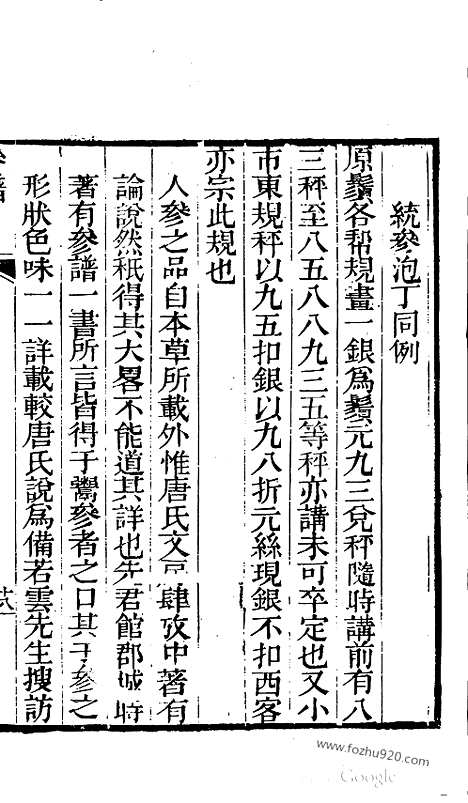 統參泡丁同例
原鬚各帮規畫一銀爲鬚元九三兌秤隨時講前有八
三秤至八五八八九三五等秤亦講未可卒定也又小
市東規秤以九五扣銀以九八折元絲現銀不扣西客
亦宗此規也
人參之品自本草所載外惟唐氏文 肆攷中著有
論說然秖得其大畧不能道其詳也先君館郡城時
著有參譜一書所言皆得于鬻參者之口其于參之
形狀色味一一詳載較唐氏說爲備若雲先生搜訪
譜
www.fozhu920.com
Google